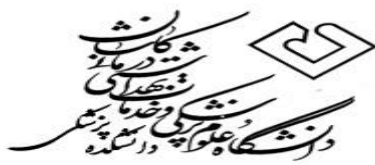 دانشگاه علوم پزشکی و خدمات بهداشتی درمانی
دانشکده پزشکی